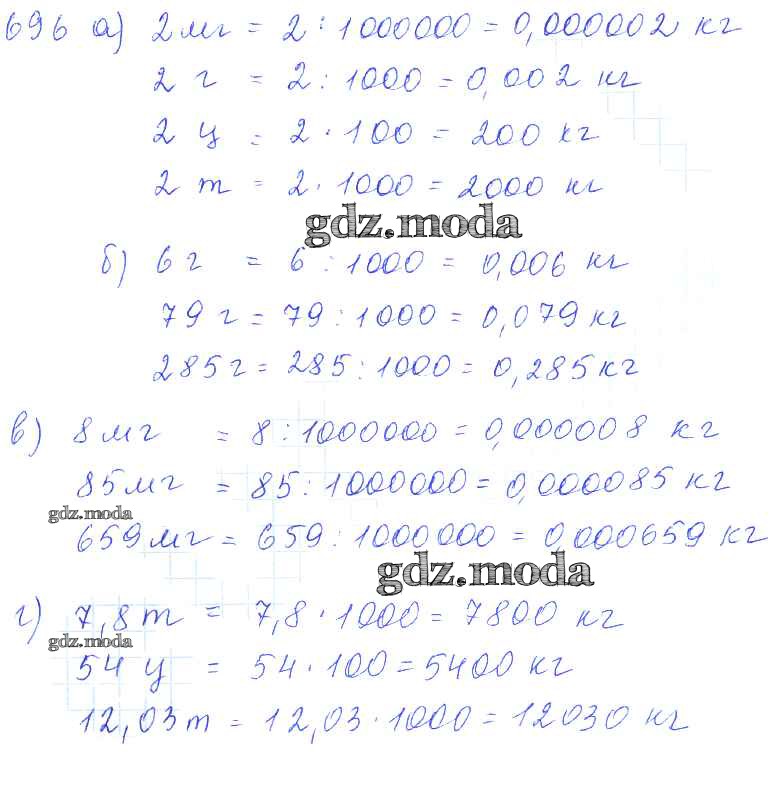 696 а) 2 мг = 2 : 1000000 = 0,000002 кг
2 г = 2 : 1000 = 0,002 кг
2 ц = 2 · 100 = 200 кг
2 т = 2 · 1000 = 2000 кг
gdz.moda
б) 6 г = 6 : 1000 = 0,006 кг
79 г = 79 : 1000 = 0,079 кг
285 г = 285 : 1000 = 0,285 кг
в) 8 мг = 8 : 1000000 = 0,000008 кг
85 мг = 85 : 1000000 = 0,000085 кг
gdz.moda
659 мг = 659 : 1000000 = 0,000659 кг
gdz.moda
г) 7,8 т = 7,8 · 1000 = 7800 кг
gdz.moda
54 ц = 54 · 100 = 5400 кг
12,03 т = 12,03 · 1000 = 12030 кг